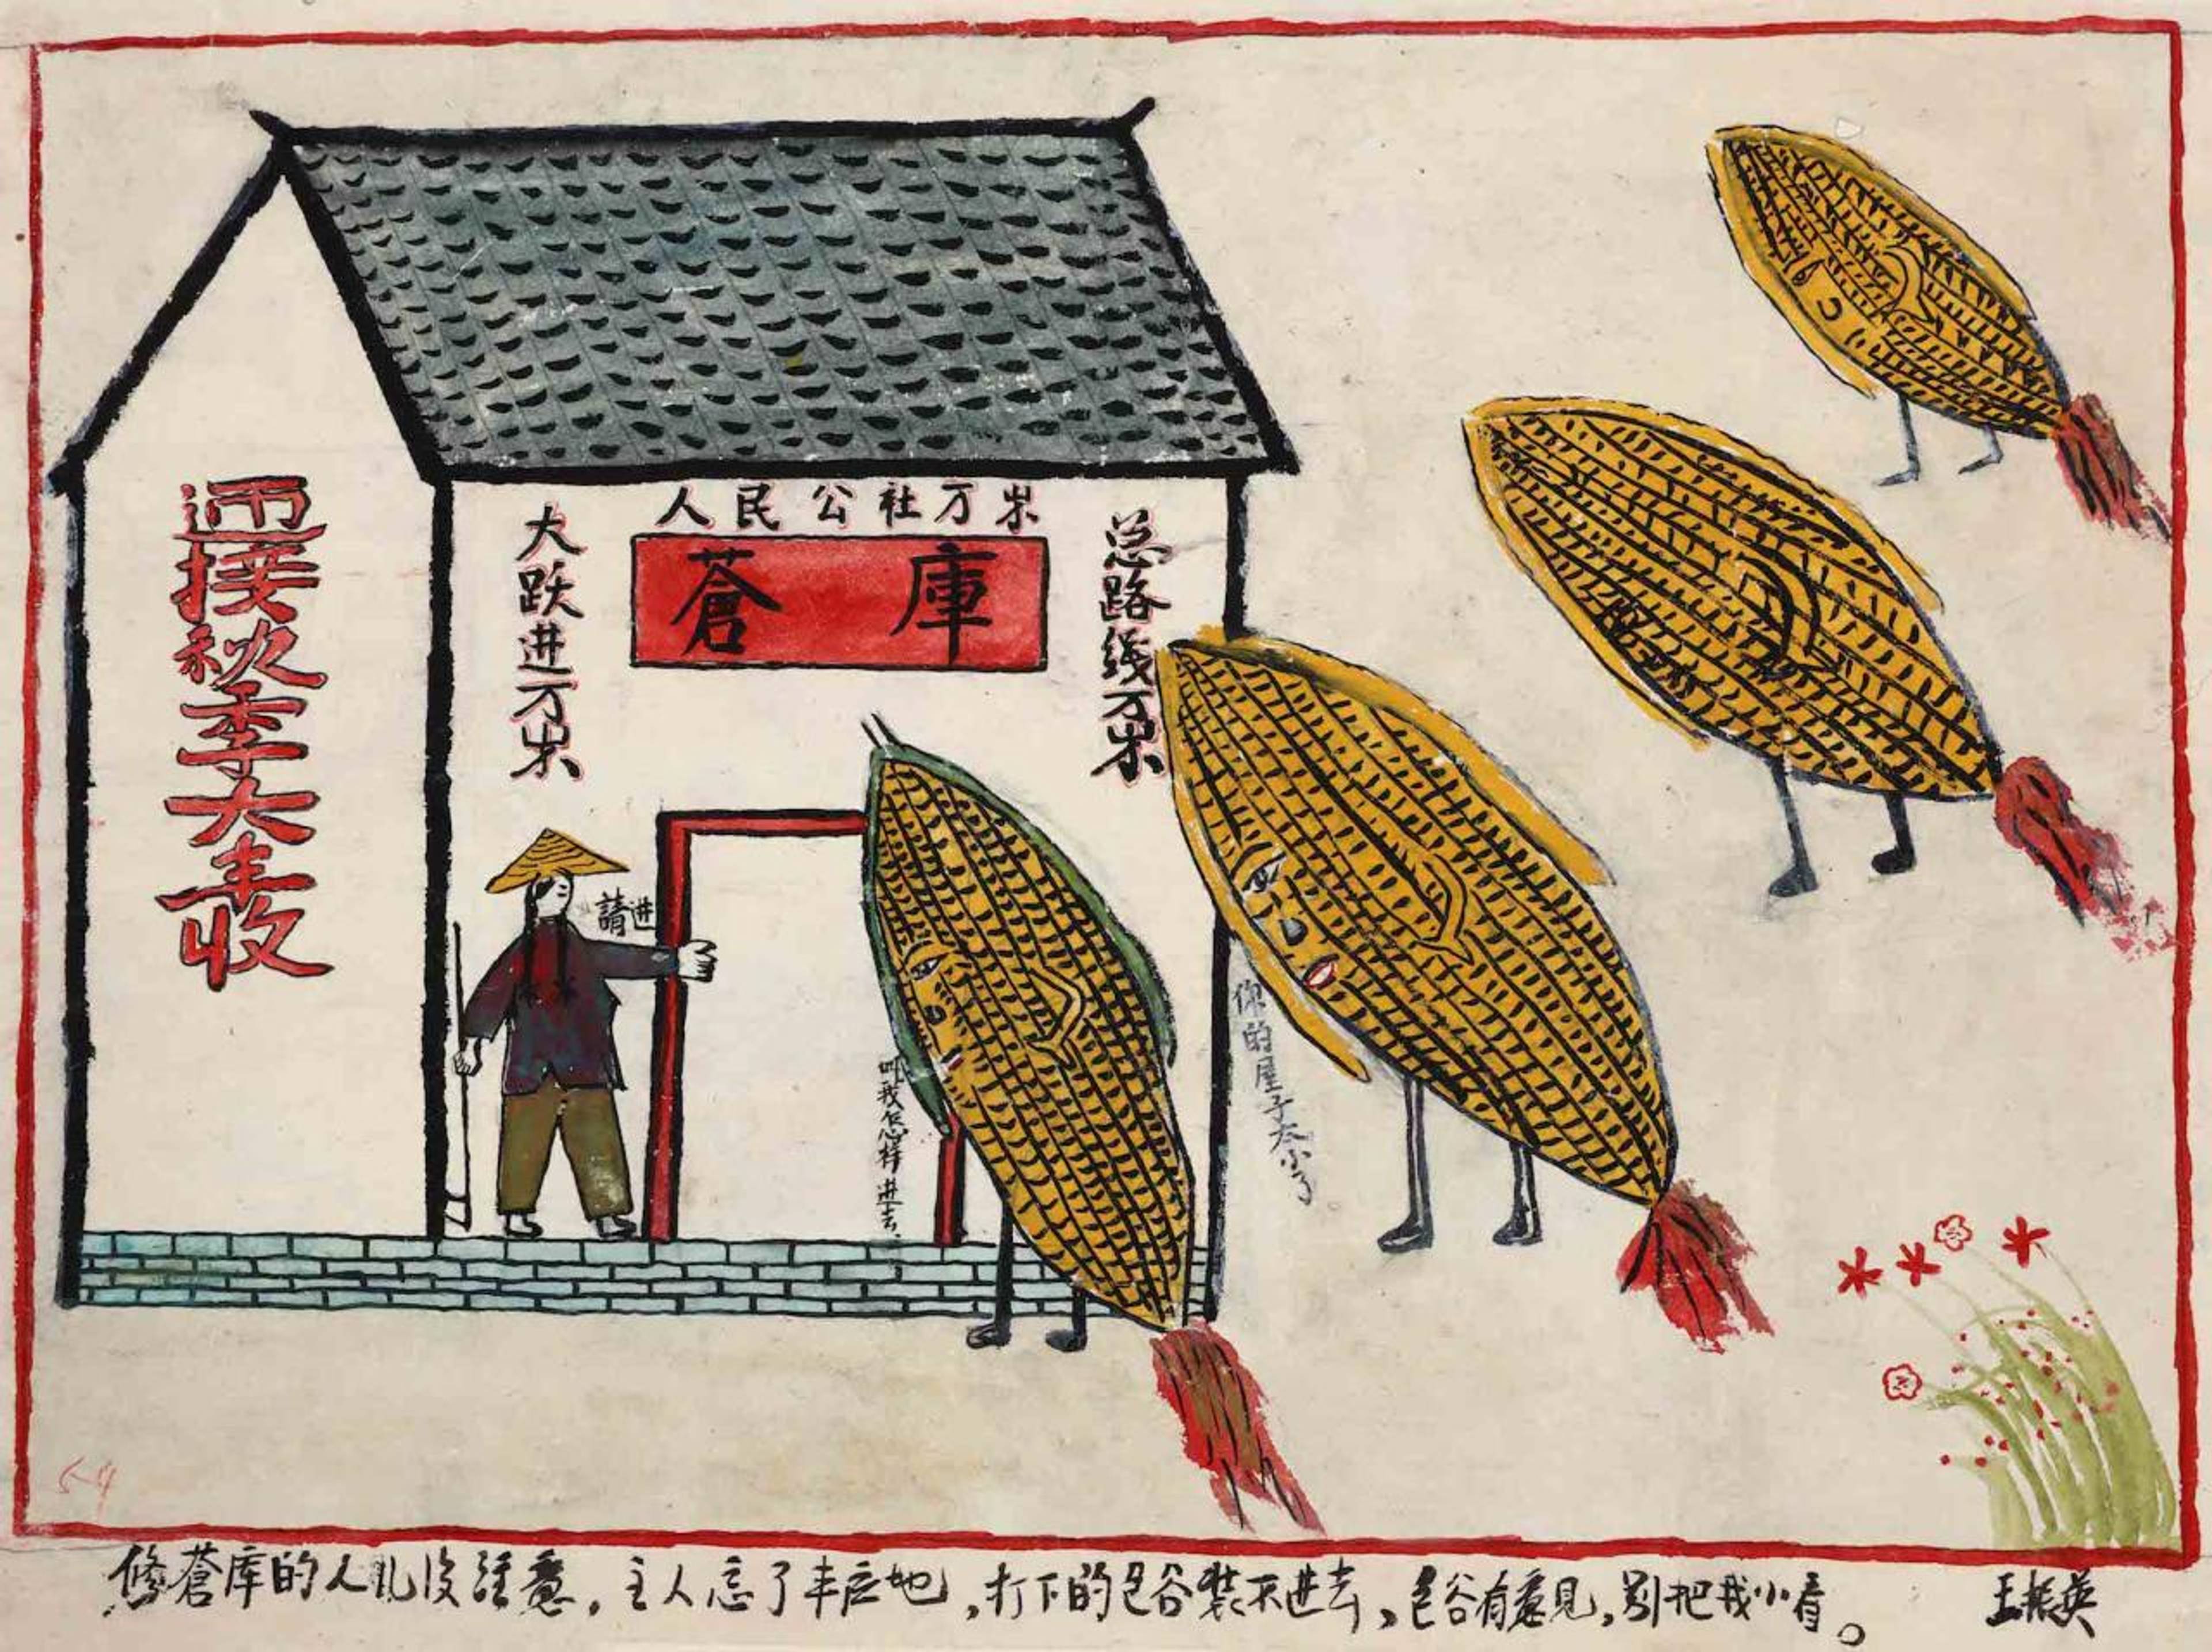 迊接秋季大丰收
人民公社万岁
蒼庫
大跃进万岁
总路线万岁
請进
叫我怎样进去.
你的屋子太小了
修蒼库的人儿没註意,主人忘了丰产地,打下的包谷装不进去,包谷有意见,别把我小看。
王振英